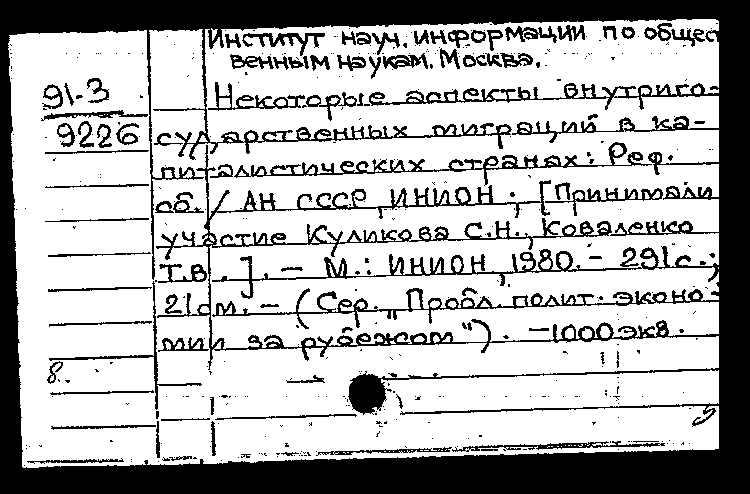 Институт науч. информации по общест
венным наукам. Москва.
91-3
9226
Некоторые аспекты внутриго-
сударственных миграций в ка-
питалистических странах: Реф.
сб. / АН СССР, ИНИОН; [Принимали
участие Куликова С.Н., Коваленко
Т.В.]. — М.: ИНИОН, 1980. — 291с.;
21см. — (Сер. „Пробл. полит. эконо-
мии за рубежом"). — 1000экз.
8.